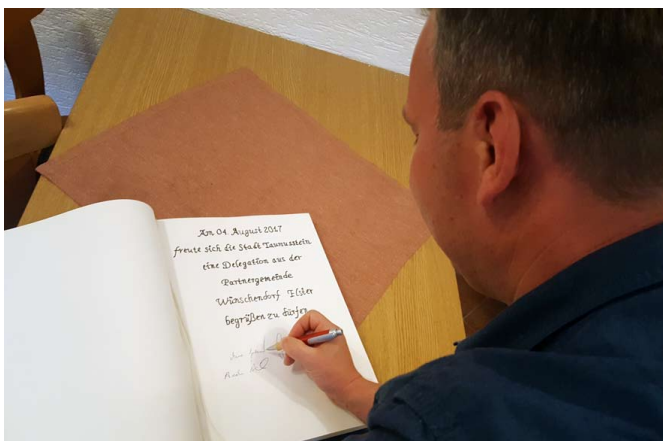 Am 04. August 2017
freute sich die Stadt Taunusstein
eine Delegation aus der
Partnergemeinde
Wünschendorf Elster
begrüßen zu dürfen